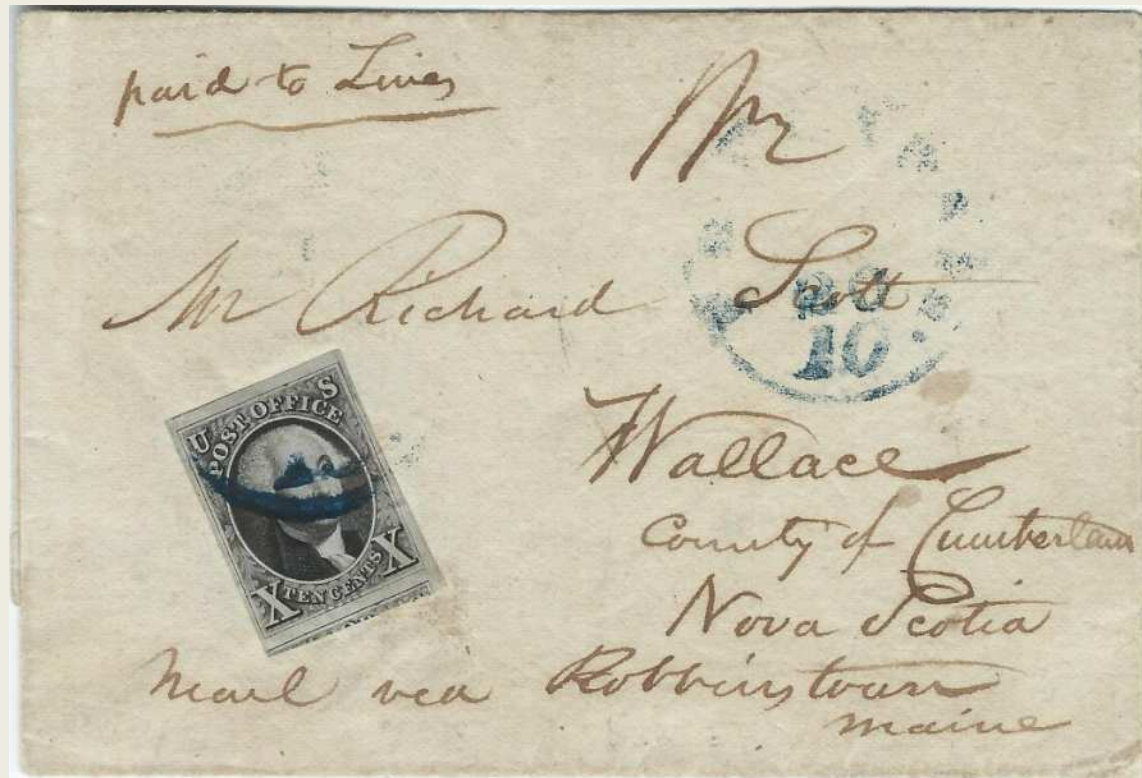 paid to Lines
Mr Richard Scott
20
10
U S
POST OFFICE
X TEN CENTS X
Wallace
County of Cumberland
Nova Scotia
Mail via Robbinstown
Maine